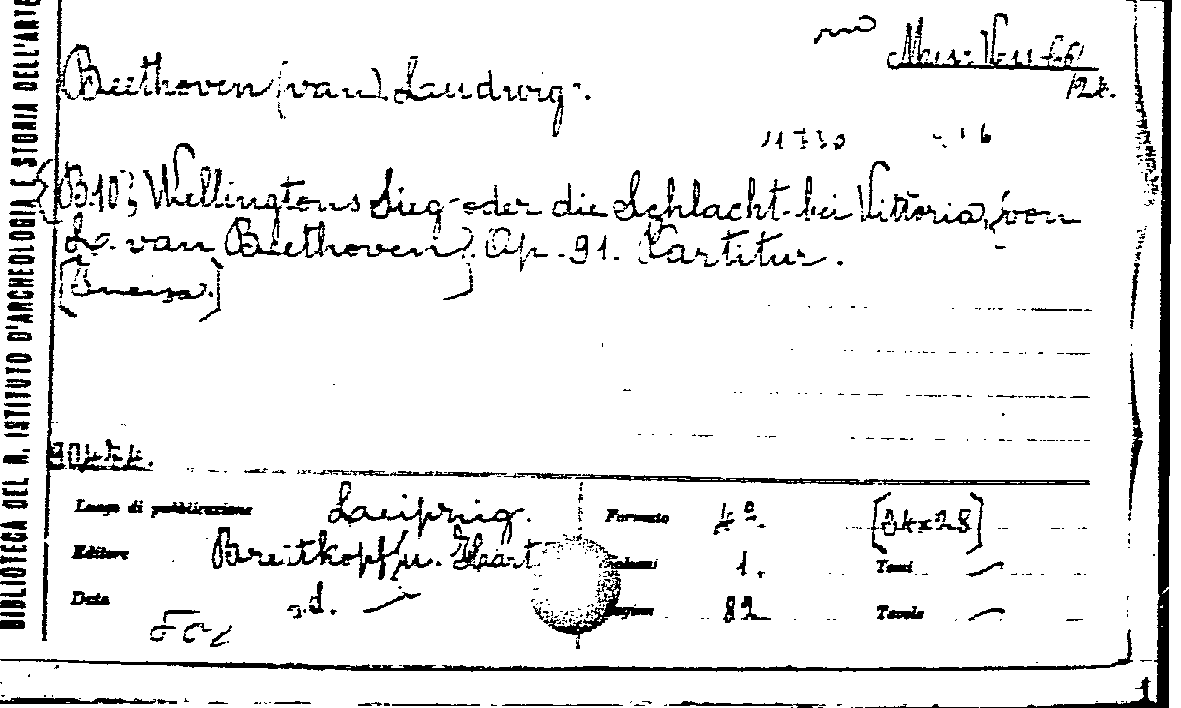 BIBLIOTECA DEL R. ISTITUTO D'ARCHEOLOGIA E STORIA DELL'ARTE
Beethoven (van) Laudwig.
11730
B.10; Wellingtons Sieg oder die Schlacht bei Vittoria, von
L. van Beethoven). Op. 91. Partitur.
Luogo di pubblicazione Laeipzig. Formato 4º. [34x28]
Editore Breitkopf u. Haart Volumi 1. Tomi —
Data s.d. — Pagine 82 Tavole —